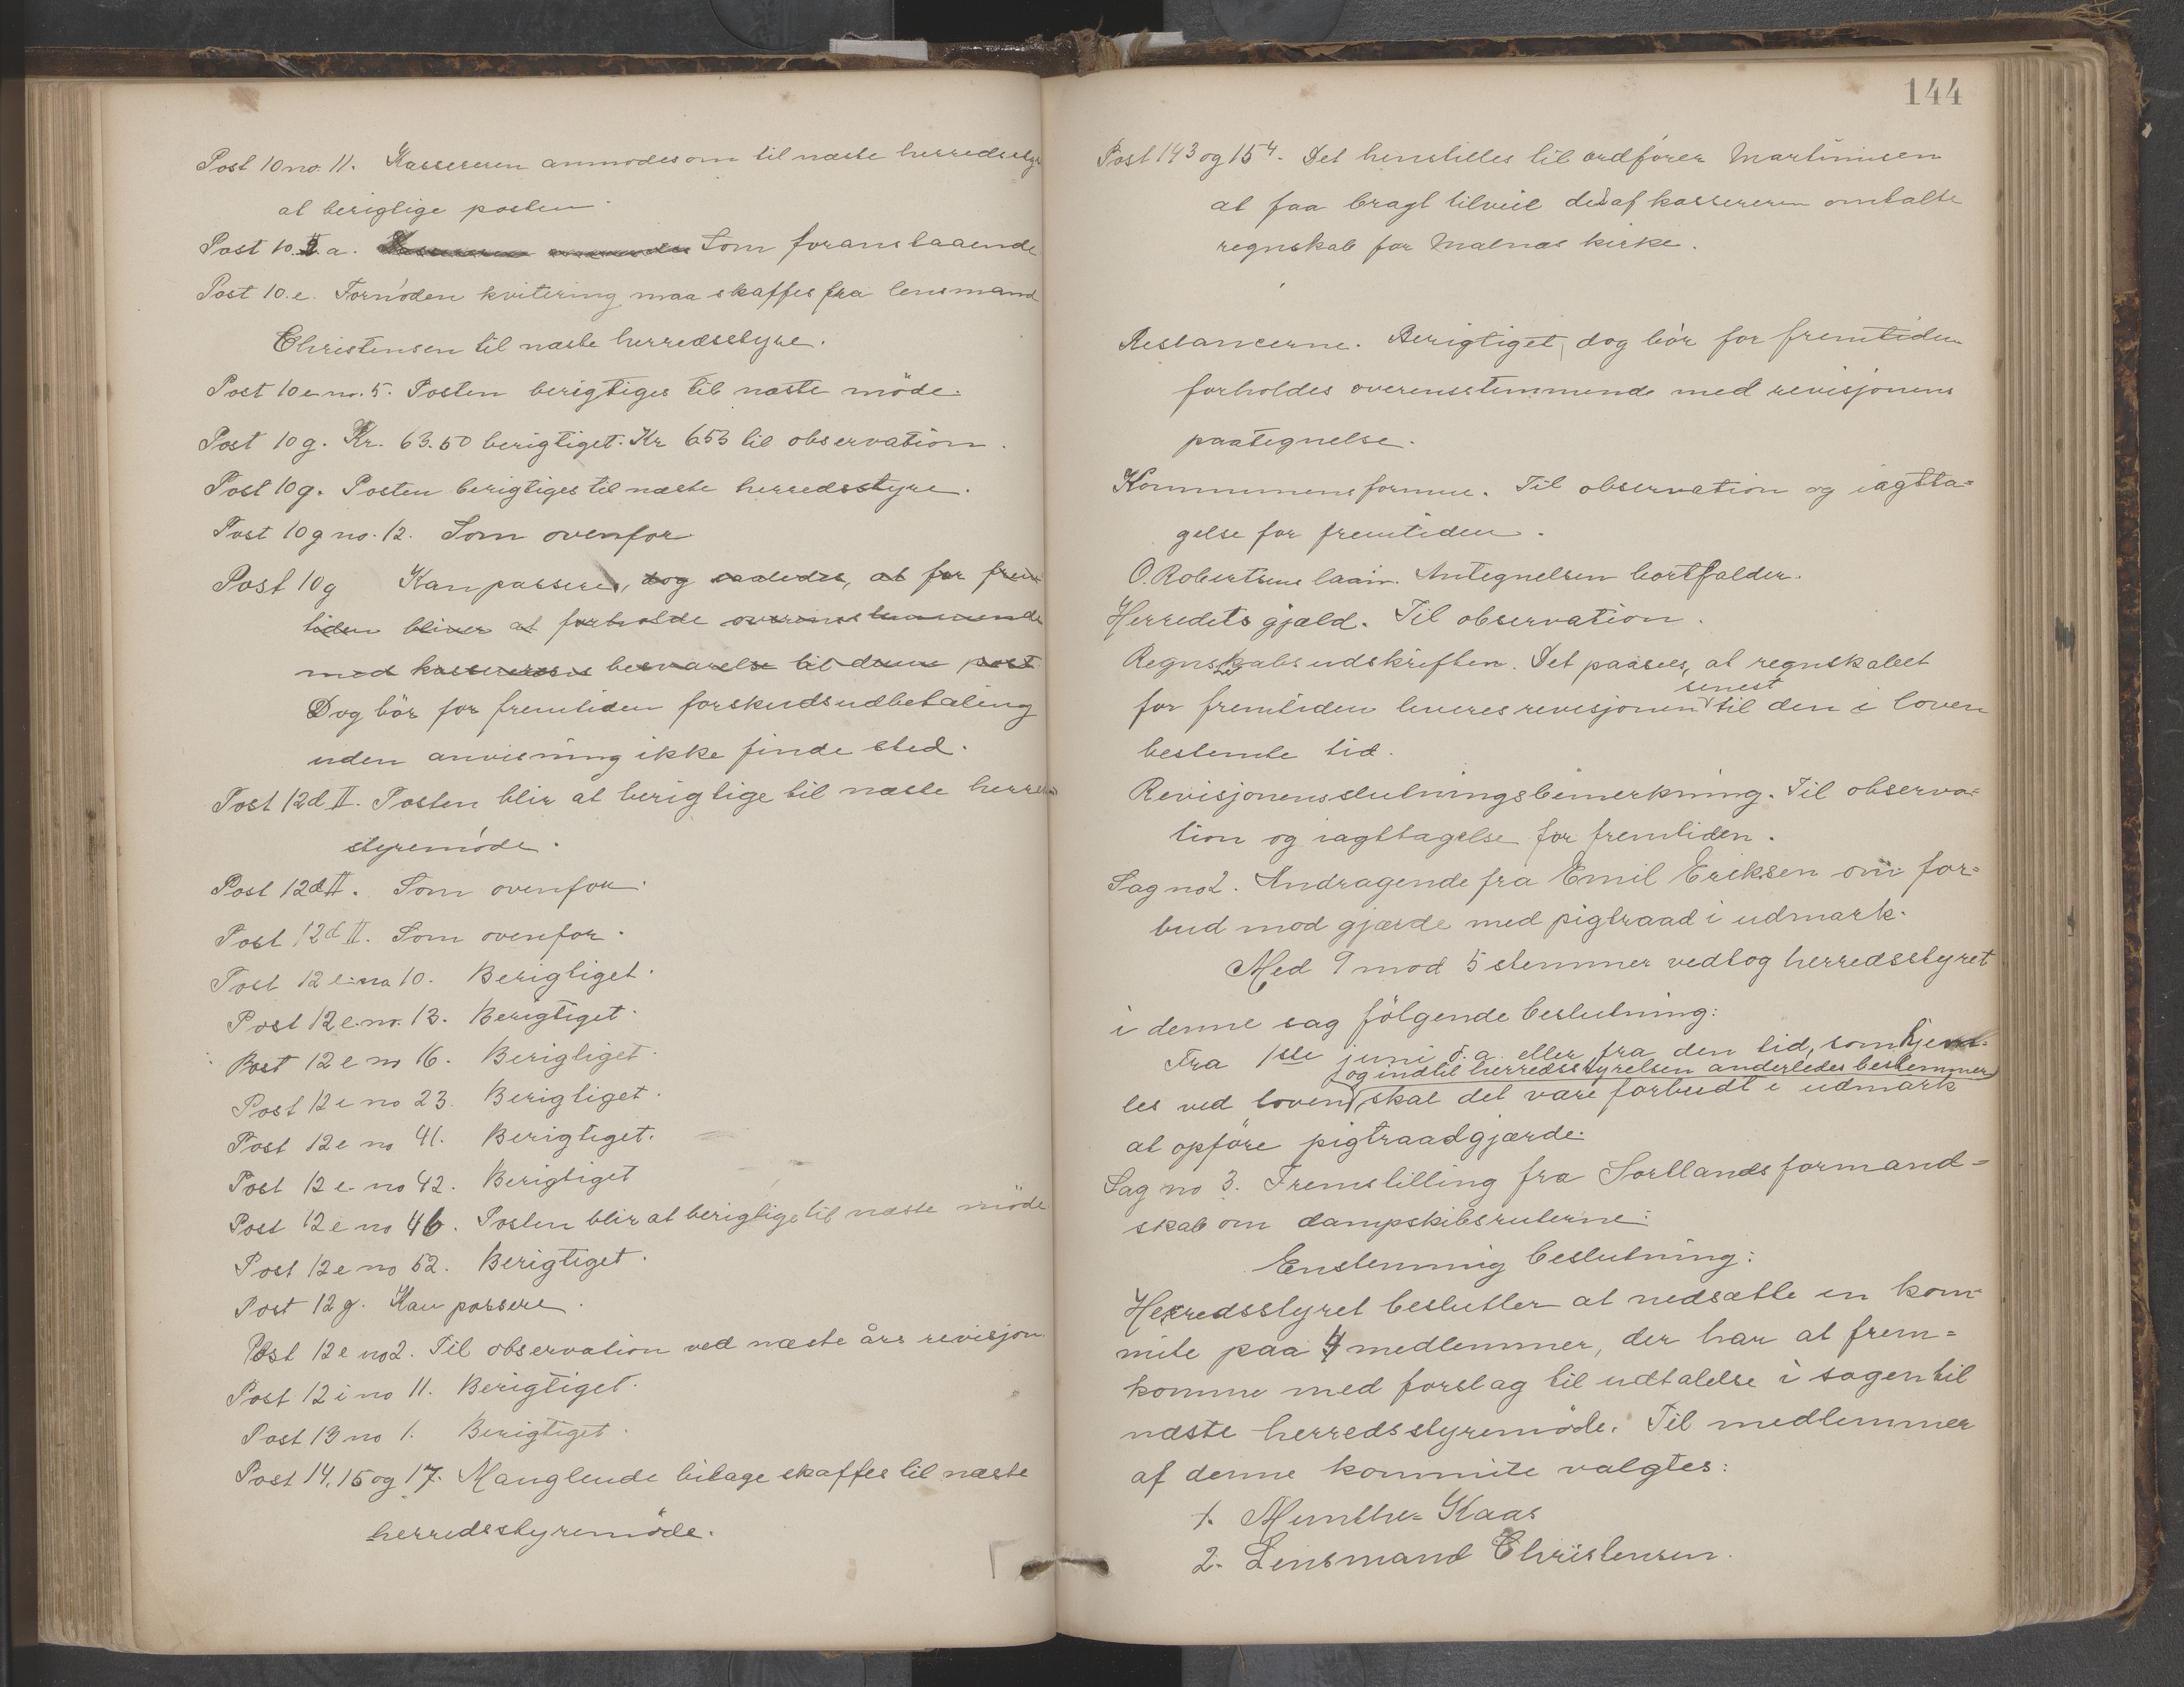 Post 10 no. 11. Kassereren anmodes om til næste herredssty
at berigtige posten.
Post 10.II.a. Kassereren anmodes Som foranstaaende
Post 10.e. Fornöden kvitering maa skaffes fra lensmand
Christensen til næste herredsstyre.
Post 10 e no. 5. Posten berigtiges til næste möde.
Post 10 g. Kr. 63.50 berigtiget. Kr 653 til observation.
Post 10 g. Posten berigtiges til næste herredsstyre.
Post 10 g no. 12. Som ovenfor
Post 10 g Kan passere, dog saaledes, at for frem
tiden bliver at forholde overensstemmende
med kassererens besvarelse til denne post
Dog bör for fremtiden forskudsudbetaling
uden anvisning ikke finde sted.
Post 12 d II. Posten blir at berigtige til næste herreds
styremöde.
Post 12 d II. Som ovenfor.
Post 12 d II. Som ovenfor.
Post 12 e no 10. Berigtiget.
Post 12 e no. 13. Berigtiget.
Post 12 e no 16. Berigtiget.
Post 12 e no 23. Berigtiget.
Post 12 e no 41. Berigtiget.
Post 12 e no 42. Berigtiget
Post 12 e no 46. Posten blir at berigtige til næste möde
Post 12 e no 52. Berigtiget.
Post 12 g. Kan passere.
Post 12 e no 2. Til observation ved næste års revisjon.
Post 12 i no 11. Berigtiget.
Post 13 no 1. Berigtiget.
Post 14, 15 og 17. Manglende bilage skaffes til næste
herredsstyremöde.
144
Post 14 3 og 15 4. Det henstilles til ordförer Martinusen
at faa bragt tilveie det af kassereren omtalte
regnskab for Malnæs kirke.
Restancerne. Berigtiget, dog bör for fremtiden
forholdes overensstemmende med revisjonens
paategnelse.
Kommunens formue. Til observation og iagtta=
gelse for fremtiden.
O. Robertsens laan. Antegnelsen bortfalder.
Herredets gjæld. Til observation.
Regnskabsudskriften. Det paasees, at regnskabet
senest
for fremtiden leveres revisjonen til den i loven
bestemte tid.
Revisjonens slutningsbemerkning. Til observa=
tion og iagttagelse for fremtiden.
Sag no 2. Andragende fra Emil Eriksen om for=
bud mod gjærde med pigtraad i udmark.
Med 9 mod 5 stemmer vedtog herredsstyret
i denne sag fölgende beslutning:
Fra 1ste juni d. a. eller fra den tid, som hjem-
og indtil herredsstyrelsen anderledes bestemmer
les ved loven skal det være forbudt i udmark
at opföre pigtraadgjærde.
Sag no 3. Fremstilling fra Sortlands formand=
skab om dampskibsruterne:
Enstemmig beslutning:
Herredsstyret beslutter at nedsætte en kom-
mite paa 4 medlemmer, der har at frem=
komme med forslag til udtalelse i sagen til
næste herredsstyremöde. Til medlemmer
af denne kommite valgtes:
1. Munthe=Kaas
2. Lensmand Christensen.